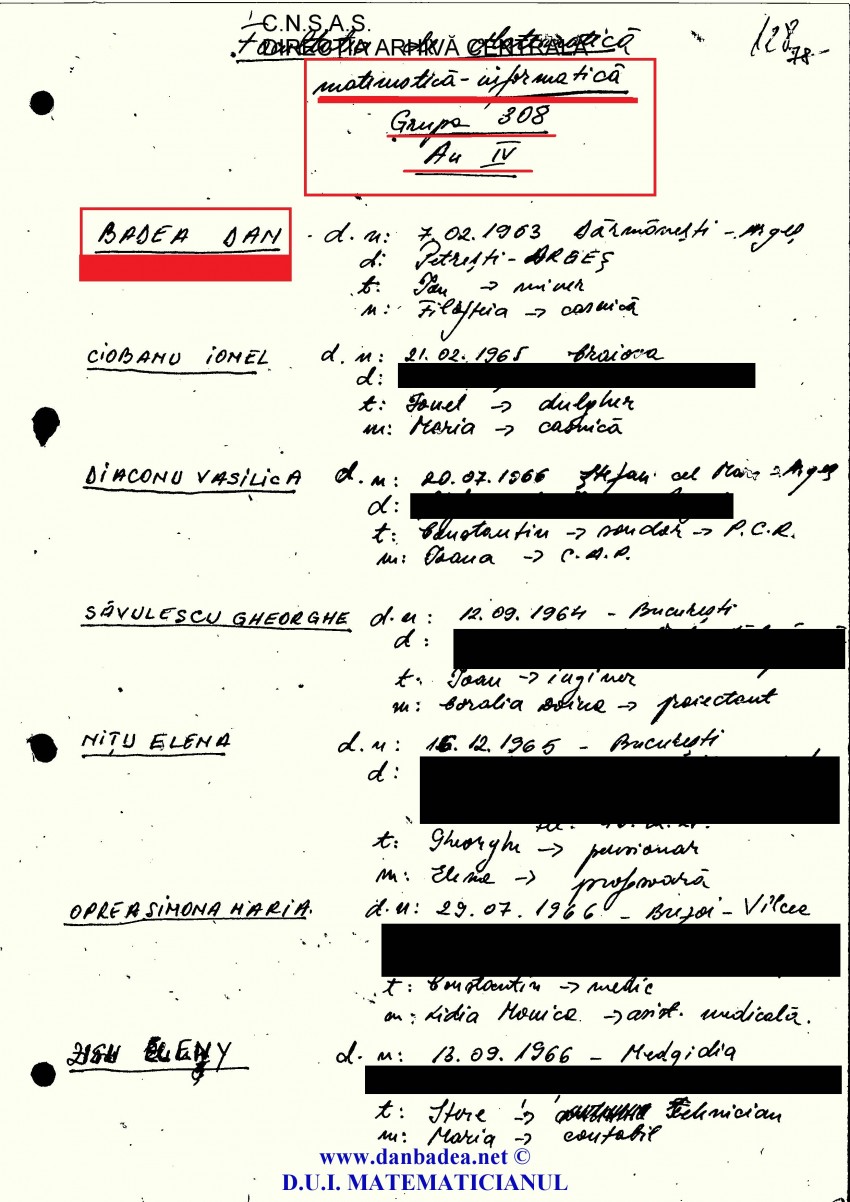 C.N.S.A.S.
DIRECȚIA ARHIVĂ CENTRALĂ
Facultatea de Matematică
128
78
matematică-informatică
Grupa 308
An IV
BADEA DAN - d. n: 7.02.1963 Dărmănești - Argeș
d: Petrești - ARGEȘ
t: Ion → miner
m: Filofteia → casnică
CIOBANU IONEL d. n: 21.02.1965 Craiova
d:
t: Ionel → dulgher
m: Maria → casnică
DIACONU VASILICA d. n: 20.07.1966 Ștefan cel Mare - Argeș
d:
t: Constantin → sondor → P.C.R.
m: Ioana → C.A.P.
SĂVULESCU GHEORGHE d. n: 12.09.1964 - București
d:
t: Ioan → inginer
m: Coralia Doina → proiectant
NIȚU ELENA d. n: 16.12.1965 - București
d:
t: Gheorghe → pensionar
m: Elena → profesoară
OPREA SIMONA MARIA. d. n: 29.07.1966 - Brezoi - Vîlcea
t: Constantin → medic
m: Lidia Monica → asist. medicală.
d. n: 13.09.1966 - Medgidia
t: → Tehnician
m: Maria → contabil
www.danbadea.net ©
D.U.I. MATEMATICIANUL